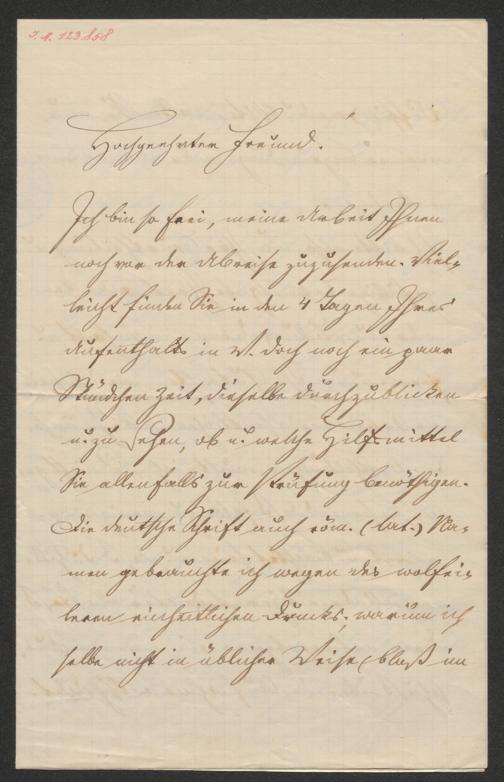 J. N. 123.858
Hochgeehrter Freund.
Ich bin so frei, meine Arbeit Ihnen
noch vor der Abreise zuzusenden. Viel-
leicht finden Sie in den 4 Tagen Ihres
Aufenthalts in W. doch noch ein paar
Stündchen Zeit, dieselbe durchzublicken
u. zu sehen, ob u. welche Hilfsmittel
Sie allenfalls zur Prüfung benöthigen.
Die deutsche Schrift auch röm. (lat.) Na-
men gebrauchte ich wegen des wolfei-
leren einheitlichen Drucks; warum ich
selbe nicht in üblicher Weise (bloß im